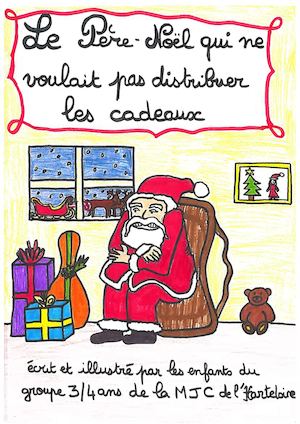 Le Père-Noël qui ne
voulait pas distribuer
les cadeaux
écrit et illustré par les enfants du
groupe 3/4 ans de la MJC de l'Harteloire